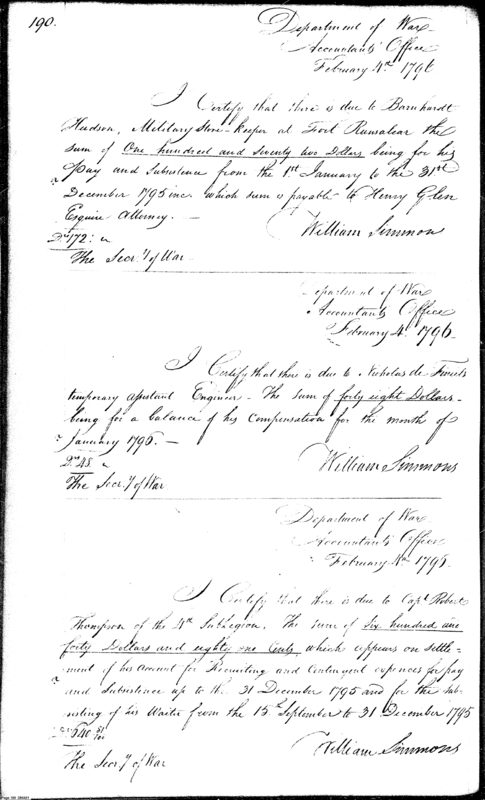 190.
Department of War
Accountants Office
February 4th 1796
I Certify that there is due to Barnhardt
Hudson, Military Store-keeper at Fort the
sum of One hundred and seventy two Dollars being for his
Pay and Subsistence from the 1st January to the 31st
December 1795 inc. which sum is payable to Henry Glen
Esquire Attorney. —
Drs 172:
William Simmons
The Secry of War
Department of War
Accountants Office
February 4. 1796
I Certify that there is due to Nicholas de
temporary assistant Engineer - The sum of forty eight Dollars -
being for a balance of his Compensation for the month of
January 1796. —
Drs 48.
William Simmons
The Secry of War
Department of War
Accountants Office
February 4th 1796
I Certify that there is due to Capt Robert
Thompson of the 4th SubLegion, The sum of Six hundred and
forty Dollars and eighty one Cents which appears on settle-
ment of his Account for Recruiting and Contingent expences for pay
and Subsistence up to the 31 December 1795 and for the sub-
sisting of his Waiter from the 15th September to 31 December 1795
640 81/100
William Simmons
The Secry of War